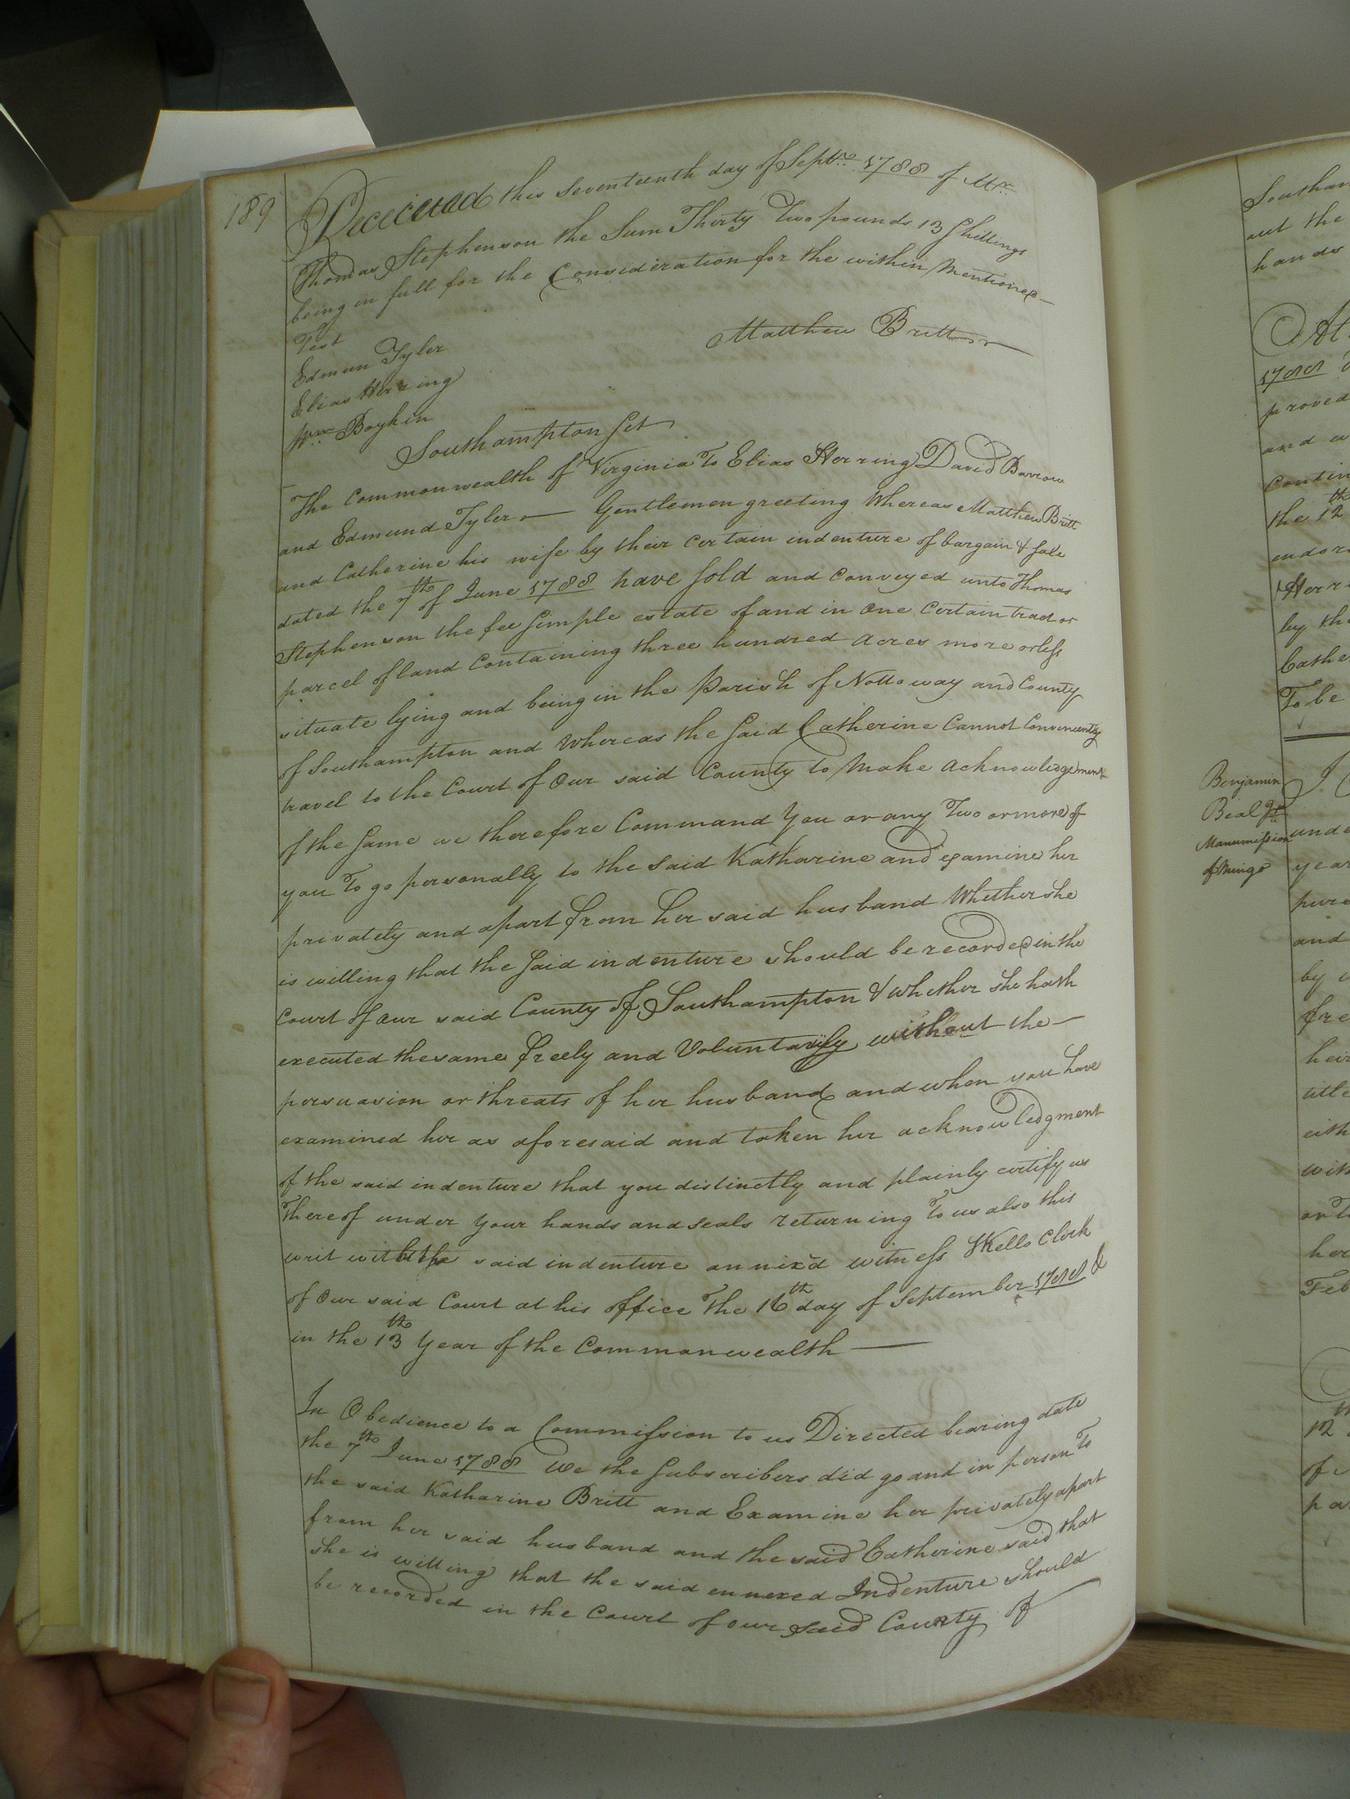 189
Received this seventeenth day of Septr. 1788 of Mr.
Thomas Stephenson the Sum Thirty Two pounds 13 Shillings
being in full for the Consideration for the within Mentioned
Test
Matthew Britt
Edmun Tyler
Elias Herring
Wm. Boykin
Southampton Sct
The Commonwealth of Virginia To Elias Herring David Barrow
and Edmund Tyler — Gentlemen greeting Whereas Matthew Britt
and Catherine his wife by their certain indenture of bargain & sale
dated the 7th of June 1788 have sold and conveyed unto Thomas
Stephenson the fee simple estate of and in One Certain tract or
parcel of land Containing three hundred Acres more or less
situate lying and being in the Parish of Nottoway and County
of Southampton and Whereas the said Catherine Cannot Conveniently
travel to the Court of Our said County to Make acknowledgement
of the same we therefore Command You or any Two or more of
you To go personally to the said Katharine and examine her
privately and apart from her said husband Whether she
is willing that the said indenture should be recorded in the
Court of our said County of Southampton & whether she hath
executed the same freely and Voluntarily without the —
persuasion or threats of her husband and when you have
examined her as aforesaid and taken her acknowledgment
of the said indenture that you distinctly and plainly certify us
Thereof under your hands and seals returning To us also this
writ with the said indenture annix'd witness Kello Clerk
of Our said Court at his office The 16th day of September 1788 &
in the 13th Year of the Commonwealth —
In Obedience to a Commission to us Directed bearing date
the 7th June 1788 We the Subscribers did go and in person To
the said Katharine Britt and Examine her privately apart
from her said husband and the said Catherine said that
she is willing that the said ennexed Indenture should
be recorded in the Court of our said County of
Southam
out the
hands
At
1788
proved
and
Contin
the 12th
endor
Herr
by the
Cathe
To be
Benjamin
Beal
Manumission
of Mingo
I
unde
year
pur
and
by
fre
heir
title
eith
wit
or
her
Feb
12th
of
pa